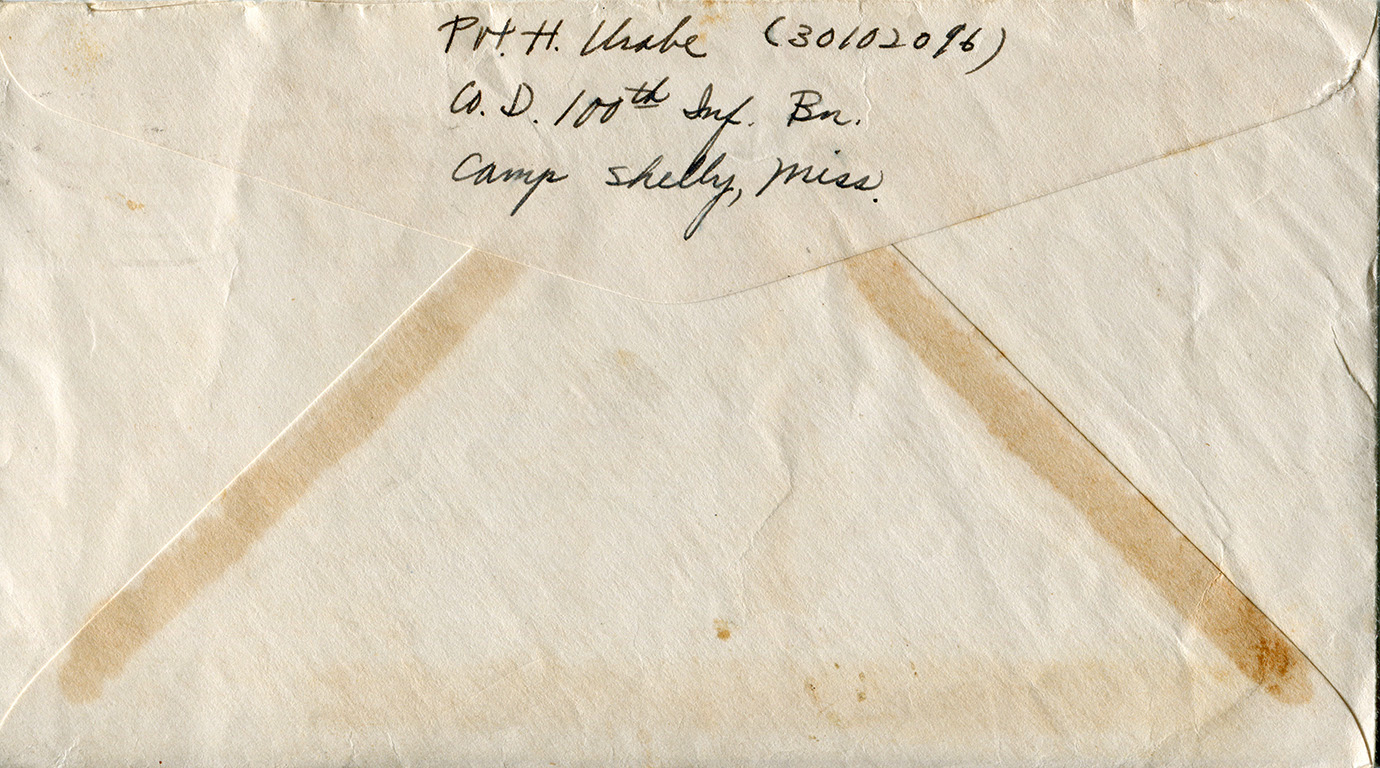 Pvt. H. Urabe (30102096)
Co. D. 100th Inf. Bn.
Camp Shelly, Miss.